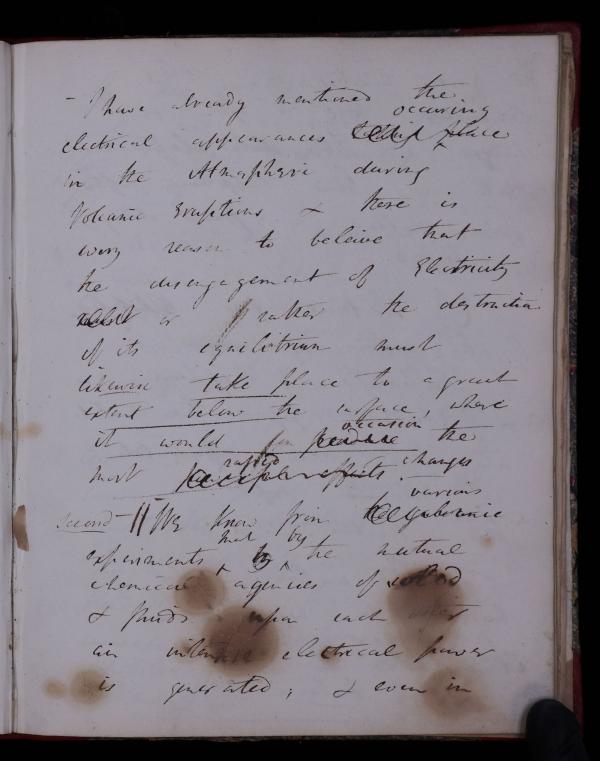 – I have already mentioned the
occuring
electrical appearances place
in the Atmosphere during
Volcanic Eruptions & there is
every reason to beleive that
the disengagement of Electricity
or rather the destruction
of its equilibrium must
likewise take place to a great
extent below the surface, where
occasion
it would produce the
rapid changes
most effects.
various
second – || We know from
that by
experiments the mutual
chemical agencies of
& fluids upon each other
an intense electrical power
is generated; & even in